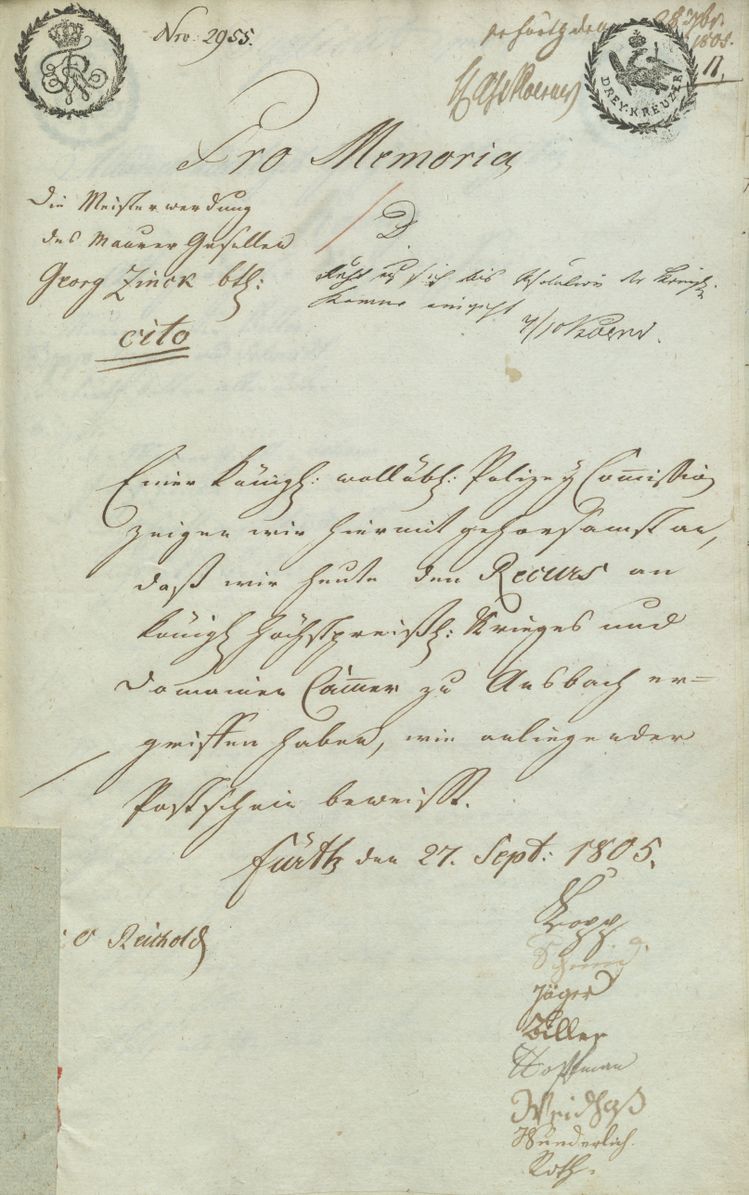 Nro: 2955.
28 7br.
1805.
11.
DREY. KREUZER
Pro Memoria
Die Meisterwerdung
des Maurer Gesellen
Georg Zinck btr:
cito
D.
Einer Königl: wolllöbl: Polizey Com̅ission
zeigen wir hiermit gehorsamst an,
daß wir heute den Recurs an
Königl höchstpreißl: Krieges und
Domainen Cam̅er zu Ansbach er=
griffen haben, wie anliegender
Postschein beweißt.
Fürth den 27. Sept: 1805.
Reichold
Kopp
Schmid
Jäger
Biller
Hoffman
Weidhaß
Wunderlich.
Roth.